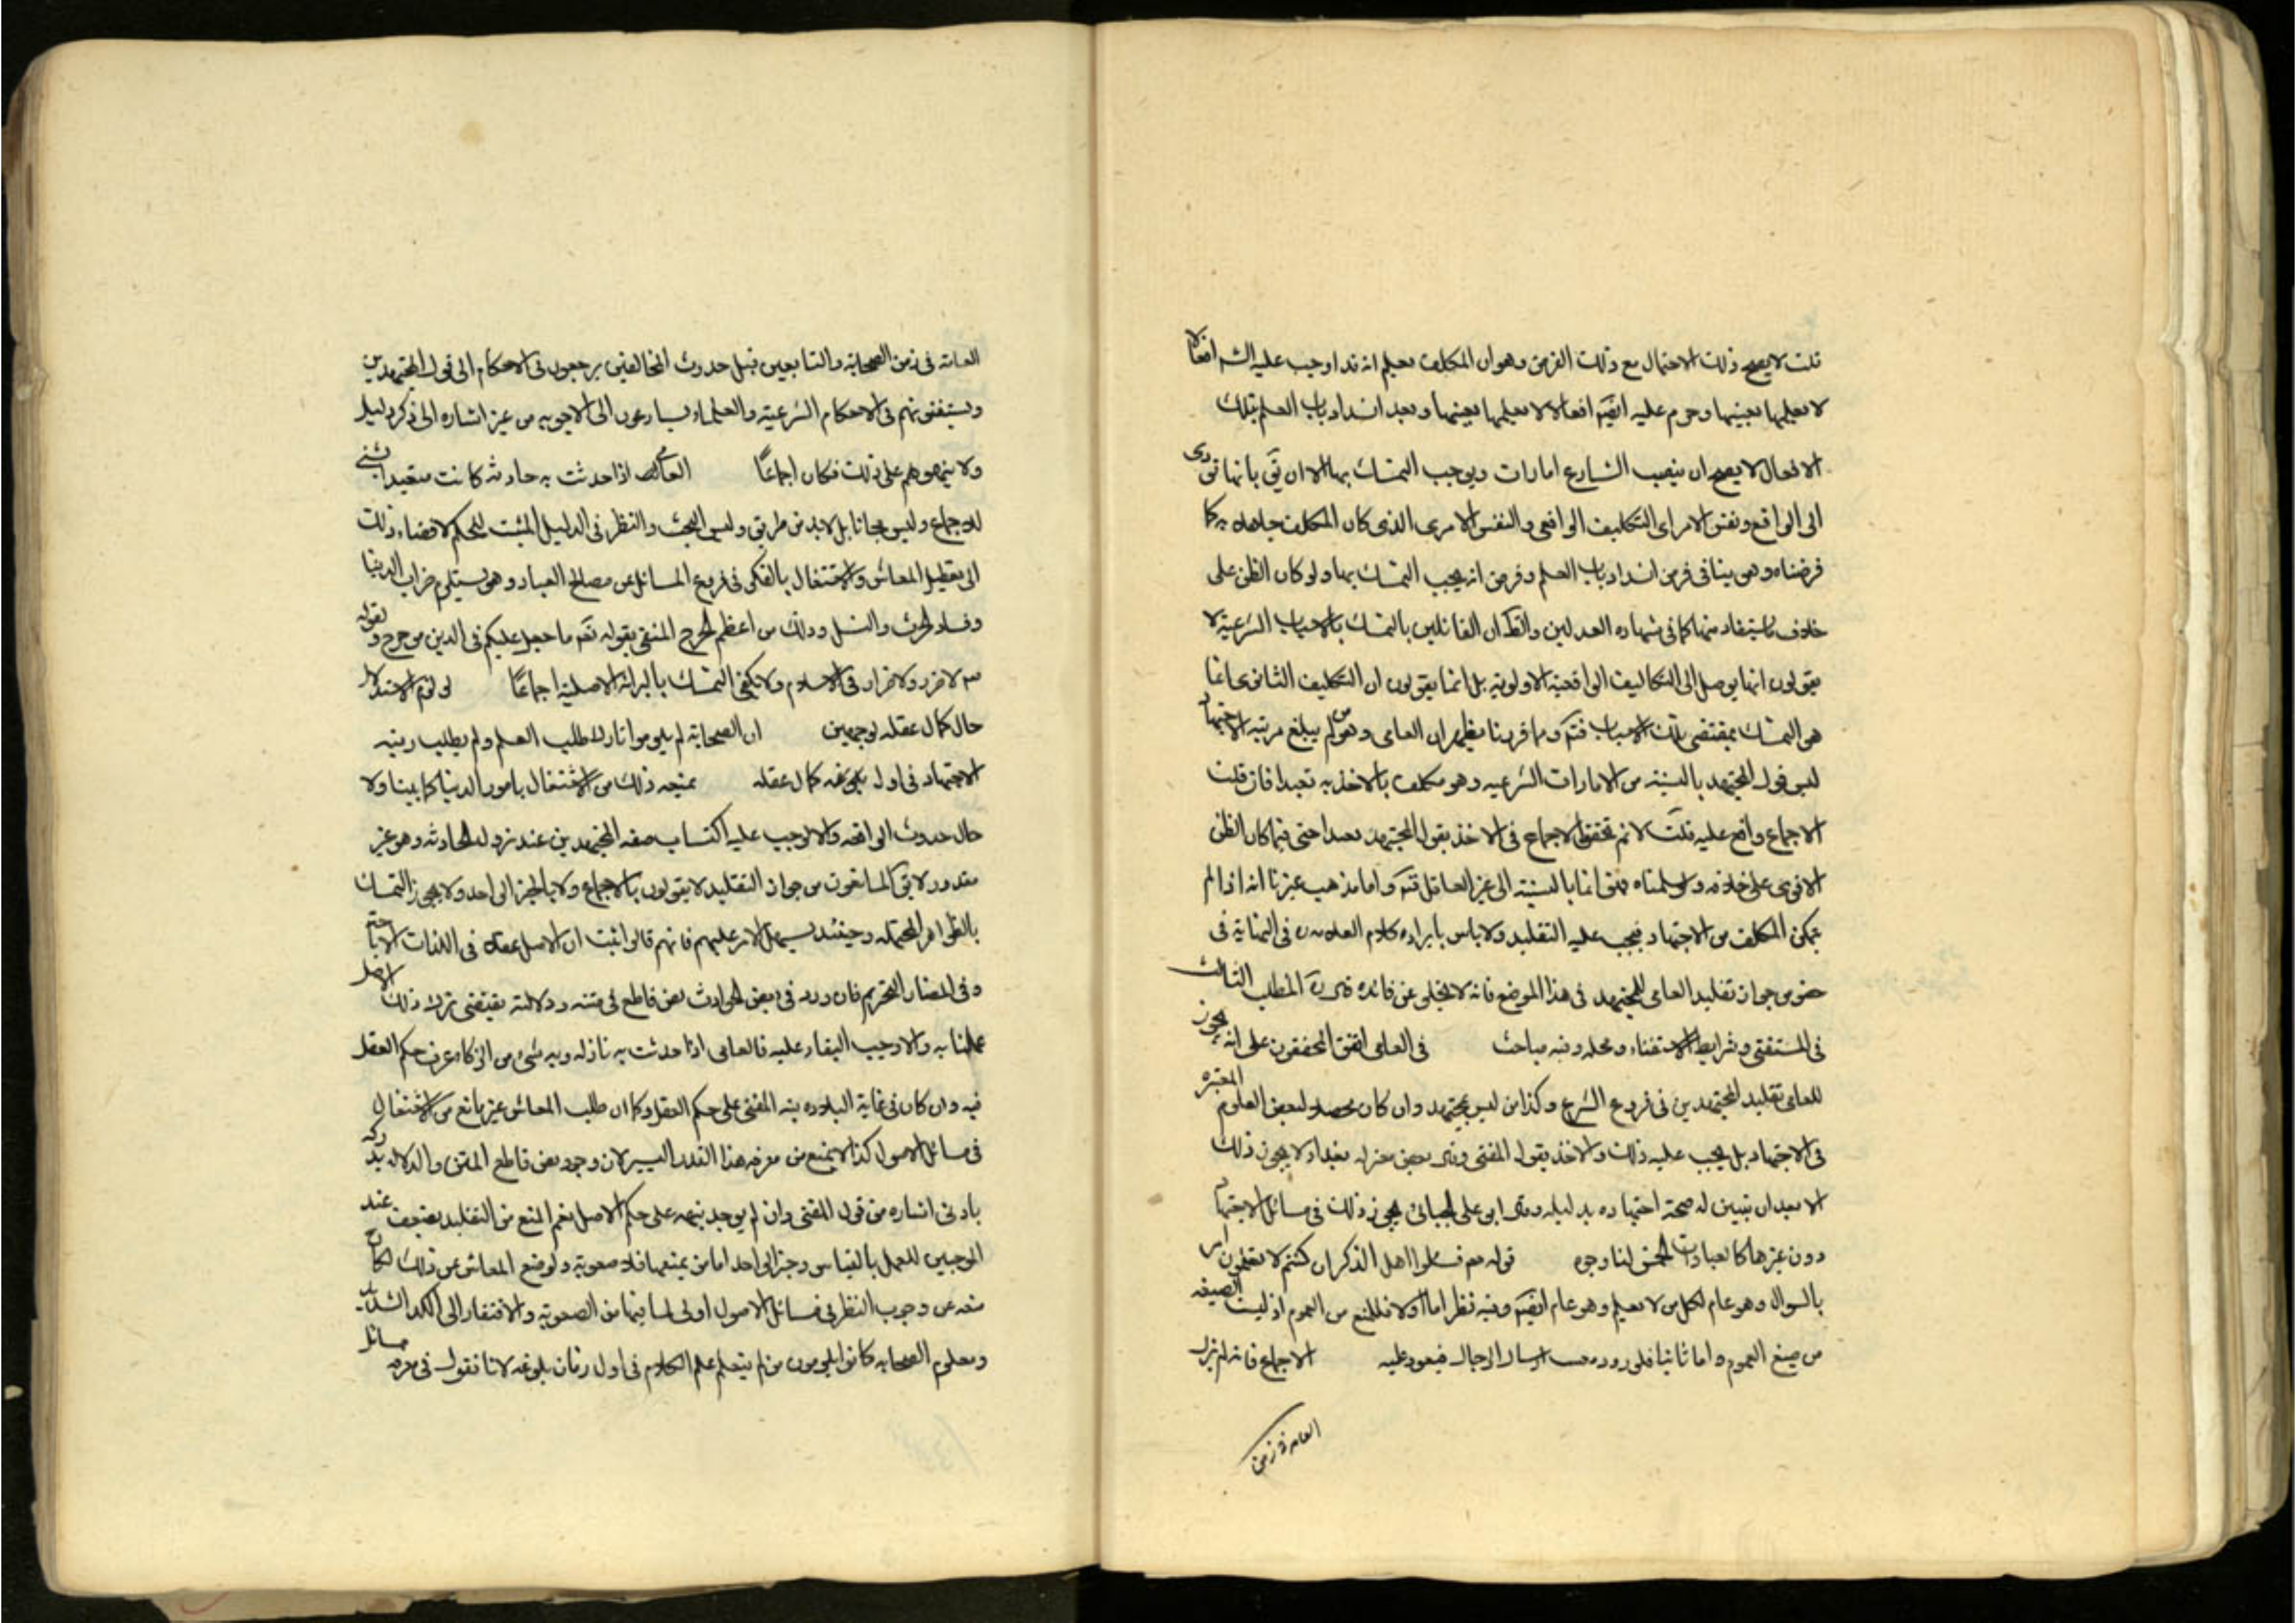 قلت لا يصح ذلك الاحتمال مع ذلك الفرض وهو ان المكلف يعلم انه قد اوجب عليه الشه افعالا
لا يعلمها بعينها وحرم عليه ايضا افعالا لا يعلمها بعينها وبعد انسداد باب العلم بتلك
الافعال لا يصح ان ينصب الشارع امارات ويوجب التمسك بها الا ان بانها تؤدى
الى الواقع ونفس الامر اى التكليف الواقعى والنفس الامرى الذى كان المكلف جاهلا به كما
فرضناه وهو ينافى فرض انسداد باب العلم وفرض انه يجب التمسك بها ولو كان الظن على
خلاف ما يستفاد منها كما فى شهاده العدلين والظ ان القائلين بالتمسك بالاسباب الشرعية لا
يقولون انها يوصل الى التكاليف الواقعية الاولوية بل انما يقولون ان التكليف الثانوى
هو التمسك بمقتضى تلك الاسباب فتم وبما قررنا يظهر ان العامى وهو من لم يبلغ مرتبه الاجتهاد
ليس قول المجتهد بالنسبة من الامارات الشرعيه وهو مكلف بالاخذ به تعبدا فان قلت
الاجماع واقع عليه قلت لا نم تحقق الاجماع فى الاخذ بقول المجتهد تعبدا حتى فيما كان الظن
الاقوى على خلافه ولو سلمناه فهو انما بالنسبة الى غير العاقل فتم واما مذهب غيرنا انه اذا لم
يتمكن المكلف من الاجتهاد فيجب عليه التقليد ولا باس بايراد كلام العلامه فى النهاية فى
خصوص جواز تقليد العامى للمجتهد فى هذا الموضع فانه لا يخلو عن فائده المطلب الثالث
فى المستفتى وشرايط الاستفتاء ومحله وفيه مباحث فى العامى اتفق المحققون على انه يجوز
للعامى تقليد المجتهدين فى فروع الشرع وكذا من ليس بمجتهد وان كان محصلا لبعض العلوم المعتبره
فى الاجتهاد بل يجب عليه ذلك والاخذ بقول المفتى بعض معتزله بغداد لا يجوز ذلك
الا بعد ان يتبين له صحة اجتهاده بدليله ابو على الجبائى يجوز ذلك فى مسائل الاجتهاد
دون غيرها كالعبادات الخمس لنا وجوه قوله فسئلوا اهل الذكر ان كنتم لا تعلمون امر
بالسوال وهو عام لكل من لا يعلم وهو عام ايضا وفيه نظر اما اولا فللمنع من العموم اذ ليست الصيغه
من صيغ العموم واما ثانيا فلوروده ارسال الرجال فيعود عليه الاجماع فانه لم يزل
العامه فى زمن
العامة فى زمن الصحابة والتابعين قبل حدوث المخالفين يرجعون فى الاحكام الى قول المجتهدين
ويستفتونهم فى الاحكام الشرعية والعلماء يسارعون الى الاجوبه من غير اشاره الى ذكر دليل
ولا ينهوهم على ذلك فكان اجماعا العامى اذا حدثت به حادثه كانت متعبدا بشئ
للاجماع وليس مجانا بل لابد من طريق وليس البحث والنظر فى الدليل المثبت للحكم لافضاء ذلك
الى تعطيل المعاش والاشتغال بالفكر فى فروع المسائل عن مصالح العباد وهو يستلزم خراب الدنيا
وفساد الحرث والنسل وذلك من اعظم الحرج المنفى بقوله تعم ما جعل عليكم فى الدين من حرج ولقوله
لا ضرر ولا ضرار فى الاسلام ولا يكفى التمسك بالبرائة الاصلية اجماعا لو لزم الاستدلال
حال كمال عقله لوجهين ان الصحابة لم يلوموا تارك طلب العلم ولم يطلب رتبه
الاجتهاد فى اول بلوغه كمال عقله يمنعه ذلك من الاشتغال بامور الدنيا كما بينا ولا
حال حدوث الواقعه والا لوجب عليه اكتساب صفه المجتهدين عند نزول الحادثه وهو غير
مقدور لا يق المانعون من جواز التقليد لا يقولون بالاجماع ولا بالخبر الواحد ولا يجوز التمسك
بالظواهر المحتمله وحينئذ يسهل الامر عليهم فانهم قالوا اثبت ان الاصل عقلا فى اللذات الاباحة
وفى المضار التحريم فان ورد فى بعض الحوادث نص قاطع فى متنه ودلالته يقتضى ترك ذلك الاصل
عملنا به والا وجب البقاء عليه فالعامى اذا حدثت به نازله وبه شئ من الذكاء عرف حكم العقل
فيه وان كان فى غاية البلاده نبه المفتى على حكم العقل وكما ان طلب المعاش غير مانع من الاشتغال
فى مسائل الاصول كذا لا يمنع من معرفه هذا القدر اليسير لان وجود نص قاطع المتن والدلاله يدركه
بادنى اشاره من قول المفتى وان لم يوجد ينبهه على حكم الاصل نعم المنع من التقليد يصعب عند
الموجبين للعمل بالقياس وخبر الواحد اما من يمنعها فلا صعوبة ولو منع المعاش عن ذلك لكان
منعه عن وجوب النظر فى مسائل الاصول اولى لما فيها من الصعوبة والافتقار الى الكد الشديد
ومعلوم الصحابه كانوا يلومون من لم يتعلم علم الكلام فى اول زمان بلوغه لانا نقول فى معرفه مسائل